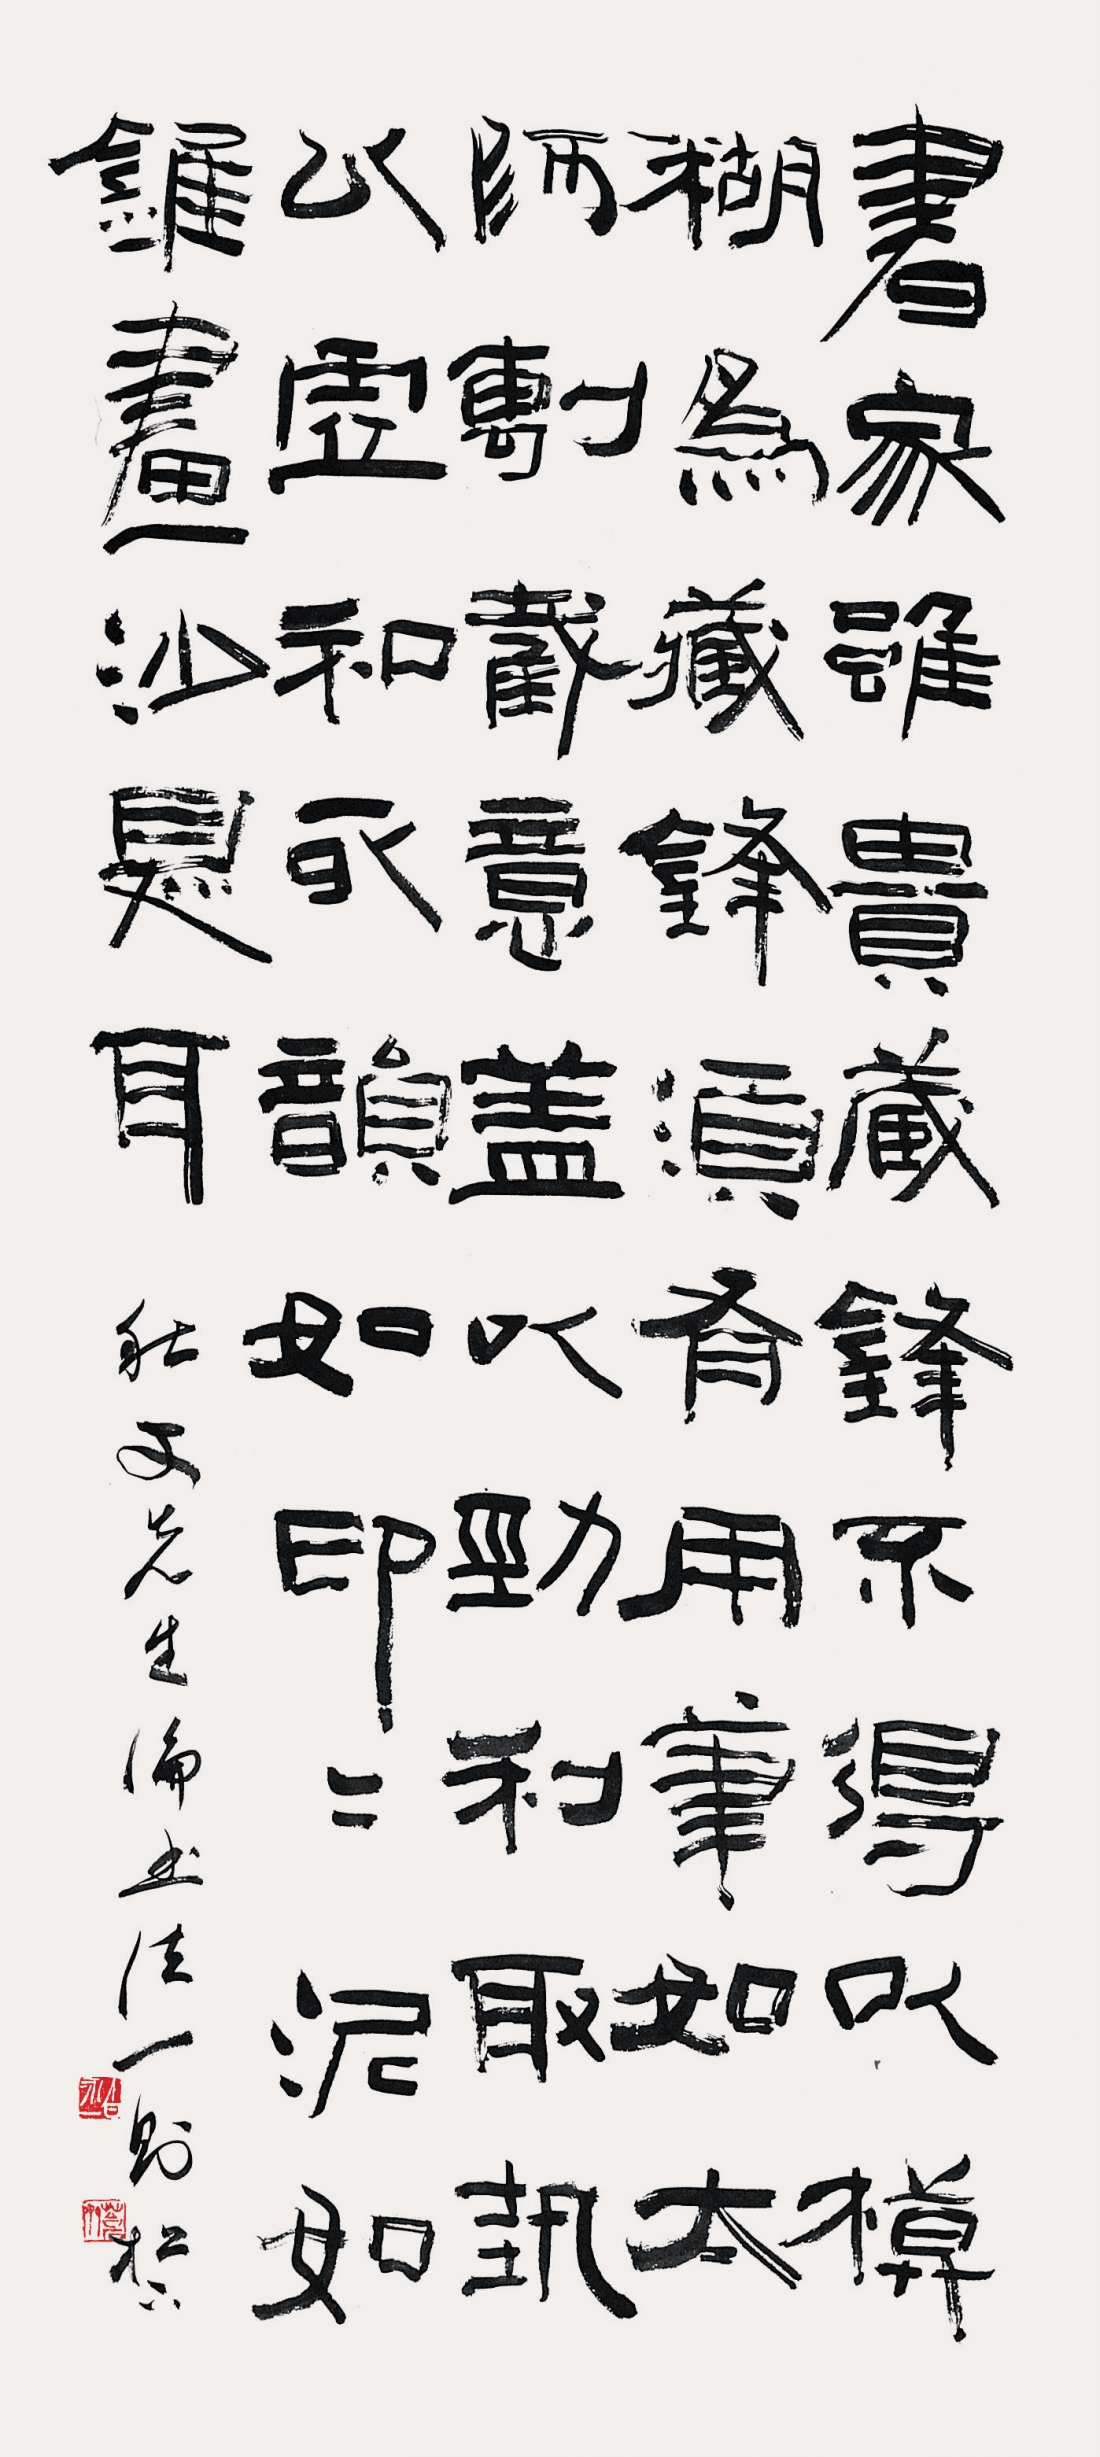 書家雖貴藏鋒不得以模
糊為藏鋒須有用筆如太
阿剸截意蓋以勁利取埶
以虛和取韻如印〻泥如
錐畫沙是耳
文先生論书法一則